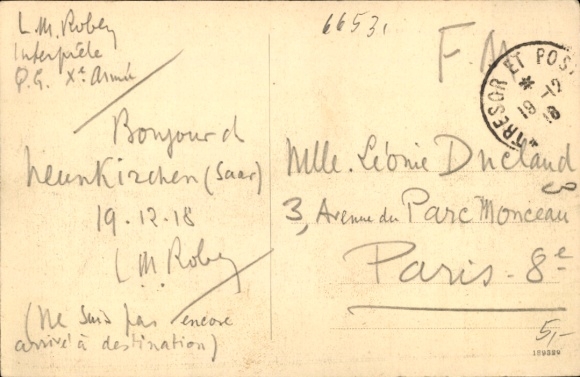 L.M. Robey
Interprète
Q.G. Xe Armée
Bonjour d
Neunkirchen (Saar)
19.12.18
L M Robey
(Ne suis pas encore
arrivé à destination)
6653,
F.M.
TRESOR ET POST
*
19 -12
18
*
Mlle. Léonie Duclaud
3, Avenue du Parc Monceau
Paris - 8e
5,-